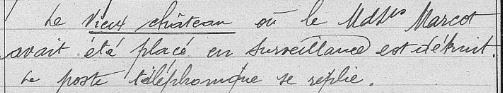 Le vieux château où le Mdsˡᵒᵍⁱˢ Marcot
avait été placé en surveillance est détruit.
Le poste téléphonique se replie.